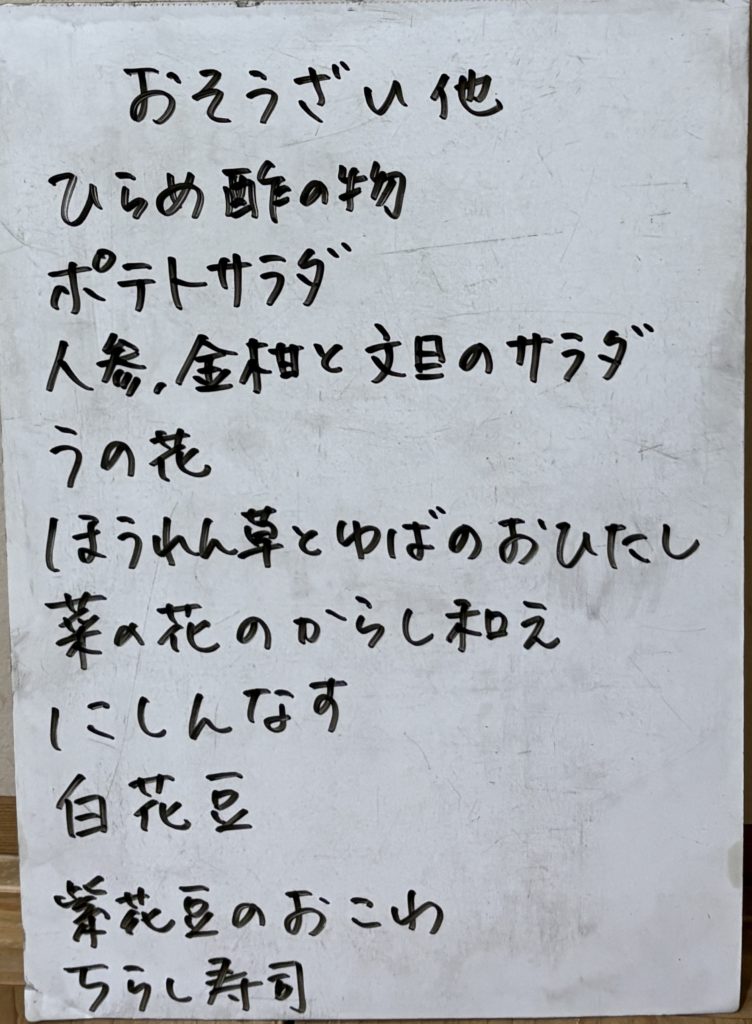 おそうざい他
ひらめ酢の物
ポテトサラダ
人参、金柑と文旦のサラダ
うの花
ほうれん草とゆばのおひたし
菜の花のからし和え
にしんなす
白花豆
紫花豆のおこわ
ちらし寿司